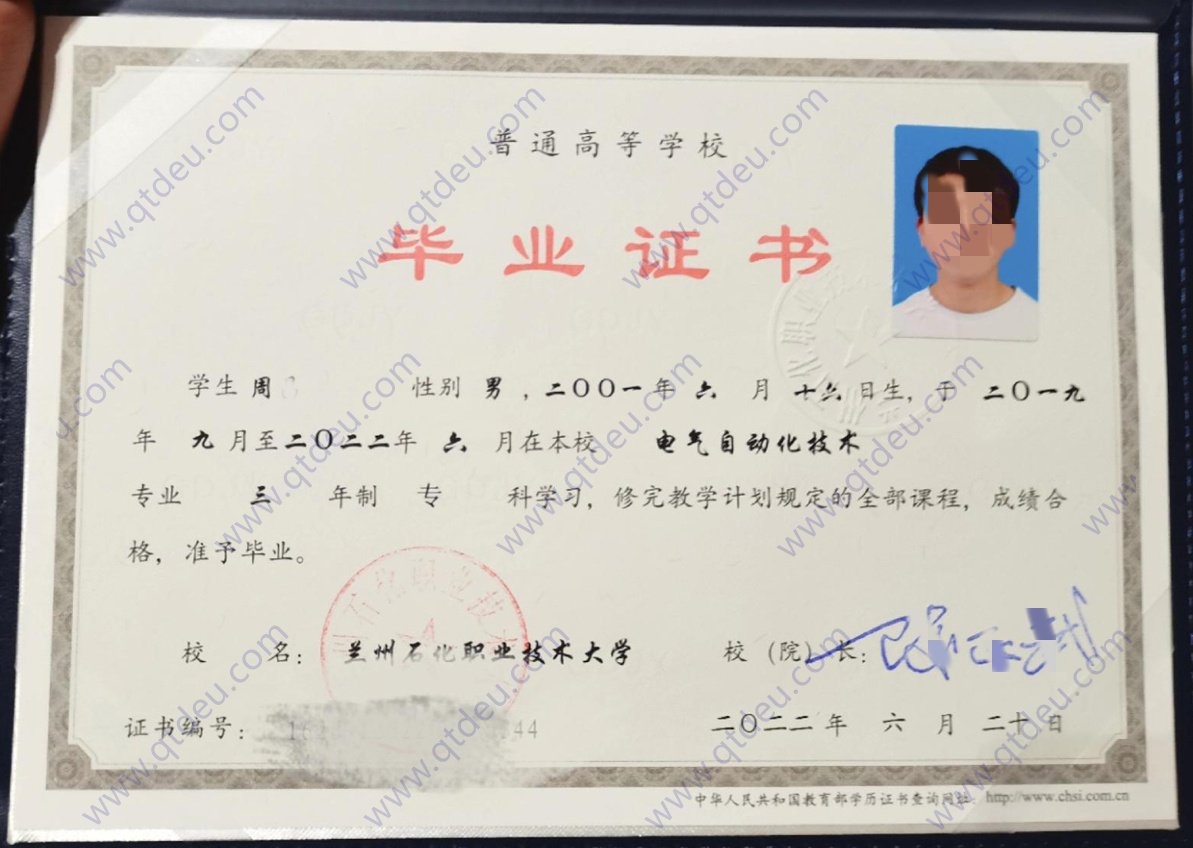 普通高等学校
毕业证书
学生 周 性别 男 ，二〇〇一年 六 月 十六日生，于 二〇一九
年 九 月至二〇二二年 六 月在本校 电气自动化技术
专业 三 年制 专 科学习，修完教学计划规定的全部课程，成绩合
格，准予毕业。
石化职业技术
校 名： 兰州石化职业技术大学 校（院）长：
证书编号： 44 二〇二二年 六 月 二十日
中华人民共和国教育部学历证书查询网址：http://www.chsi.com.cn
www.qtdeu.com
www.qtdeu.com
www.qtdeu.com
www.qtdeu.com
www.qtdeu.com
www.qtdeu.com
www.qtdeu.com
www.qtdeu.com
www.qtdeu.com
www.qtdeu.com